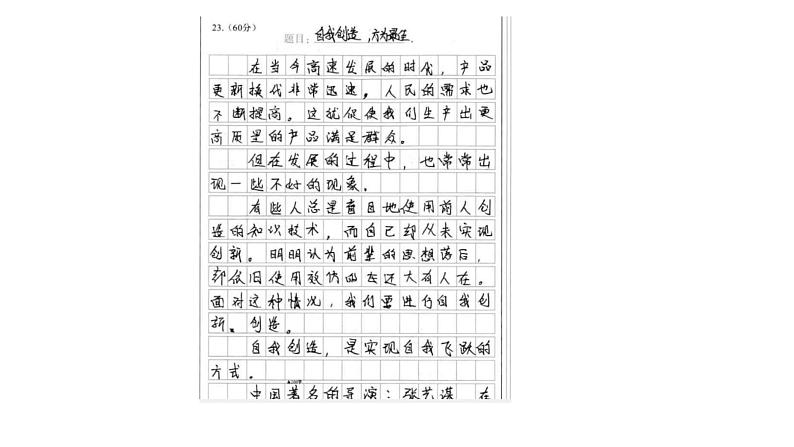 23.（60分）
题目：自我创造，方为最佳.
在当今高速发展的时代，产品
更新换代非常迅速，人民的需求也
不断提高。这就促使我们生产出更
高质量的产品满足群众。
但在发展的过程中，也常常出
现一些不好的现象。
有些人总是盲目地使用前人创
造的知识技术，而自己却从未实现
创新。明明认为前辈的思想落后，
却依旧使用效仿的左还大有人在。
面对这种情况，我们要进行自我创
新、创造。
自我创造，是实现自我飞跃的
方式。
中国著名的导演：张艺谋 在